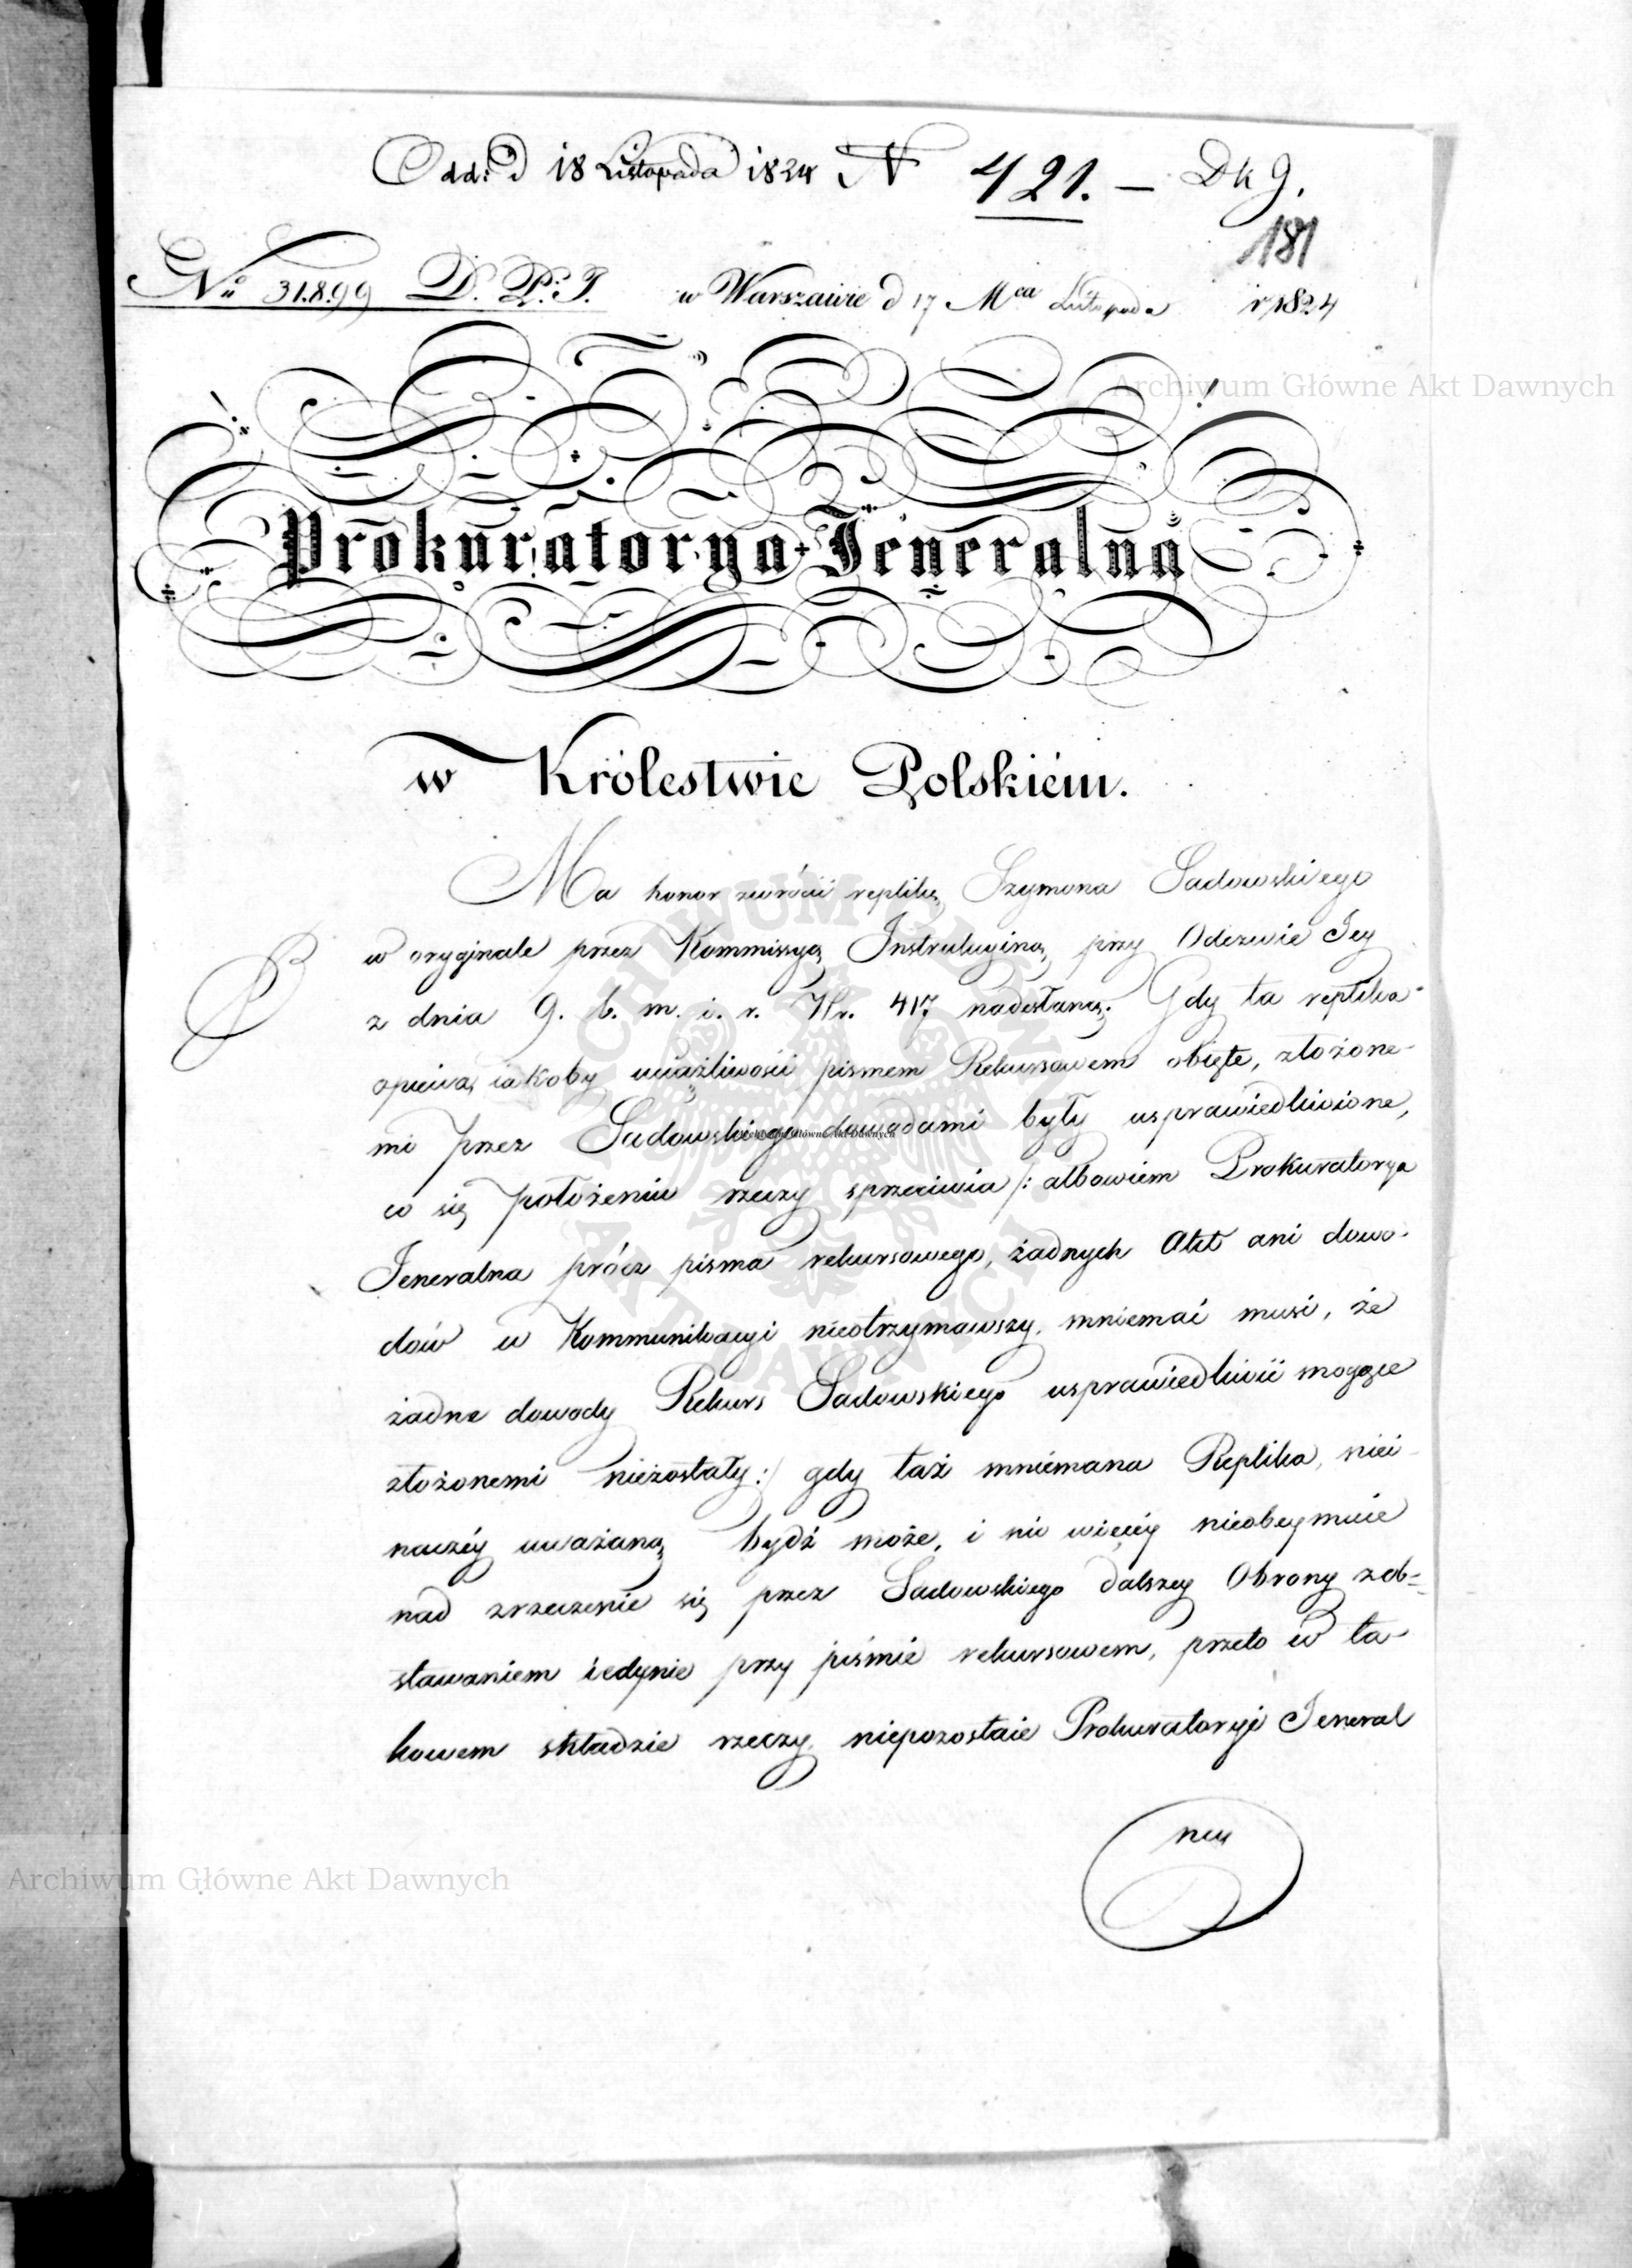 Odd: d 18 Listopada 1824 N 421. — Dk 9.
181
No 31.899 D. P. J. w Warszawie d 17 Mca Listopada r 1824
Prokuratorya Jeneralna
w Królestwie Polskiém.
Ma honor zwrócić replikę Szymona Sadowskiego
w oryginale przez Kommissyą Instrukcyiną przy Odezwie Jey
z dnia 9. b. m. i. r. Nr. 417 nadesłaną. Gdy ta replika
opiewa, iakoby uciążliwości pismem Rekursowem obięte, złożone-
mi przez Sadowskiego dowodami były usprawiedliwione,
co się położeniu rzeczy sprzeciwia /: albowiem Prokuratorya
Jeneralna prócz pisma rekursowego, żadnych Akt ani dowo-
dów w Kommunikacyi nieotrzymawszy, mniemać musi, że
żadne dowody Rekurs Sadowskiego usprawiedliwić mogące
złożonemi niezostały :/ gdy taż mniemana Replika, niei-
naczéy uważaną bydź może, i nic więcéy nieobeymuie
nad zrzeczenie się przez Sadowskiego dalszey Obrony z ob-
stawaniem iedynie przy piśmie rekursowem, przeto w ta-
kowem składzie rzeczy, niepozostaie Prokuratoryi Jeneral
ney
Archiwum Główne Akt Dawnych
Archiwum Główne Akt Dawnych
Archiwum Główne Akt Dawnych
ARCHIWUM GŁÓWNE AKT DAWNYCH